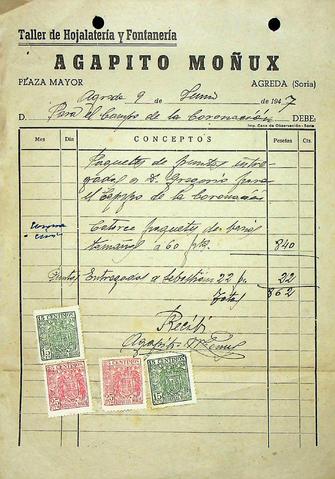 Taller de Hojalatería y Fontanería
AGAPITO MOÑUX
PLAZA MAYOR AGREDA (Soria)
Agreda 9 de Junio de 1947
D. Para el Campo de la Coronación DEBE:
Imp. Casa de Observación.-Soria
Mes Día CONCEPTOS Pesetas Cts.
Paquetes de puntas entre-
gados a D. Gregorio para
el Campo de la Coronación
Catorce paquetes de varios
tamaños a 60 pts. 840
Puntas Entregados a Sebastián 22 p. 22
Total 862
Recibí
Agapito Moñux
15 CENTIMOS 15
25 CENTIMOS 25
25 CENTIMOS 25
15 CENTIMOS 15